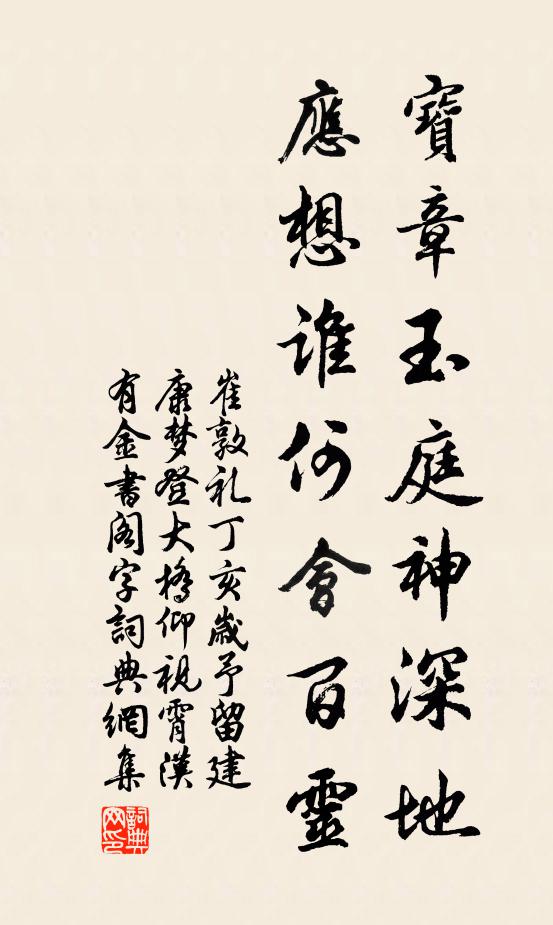 寶章玉庭神深地
應想誰何會百靈
崔敦礼丁亥歲予留建
康梦登大橋仰視霄漢
有金書閣字詞典網集
詞典网印